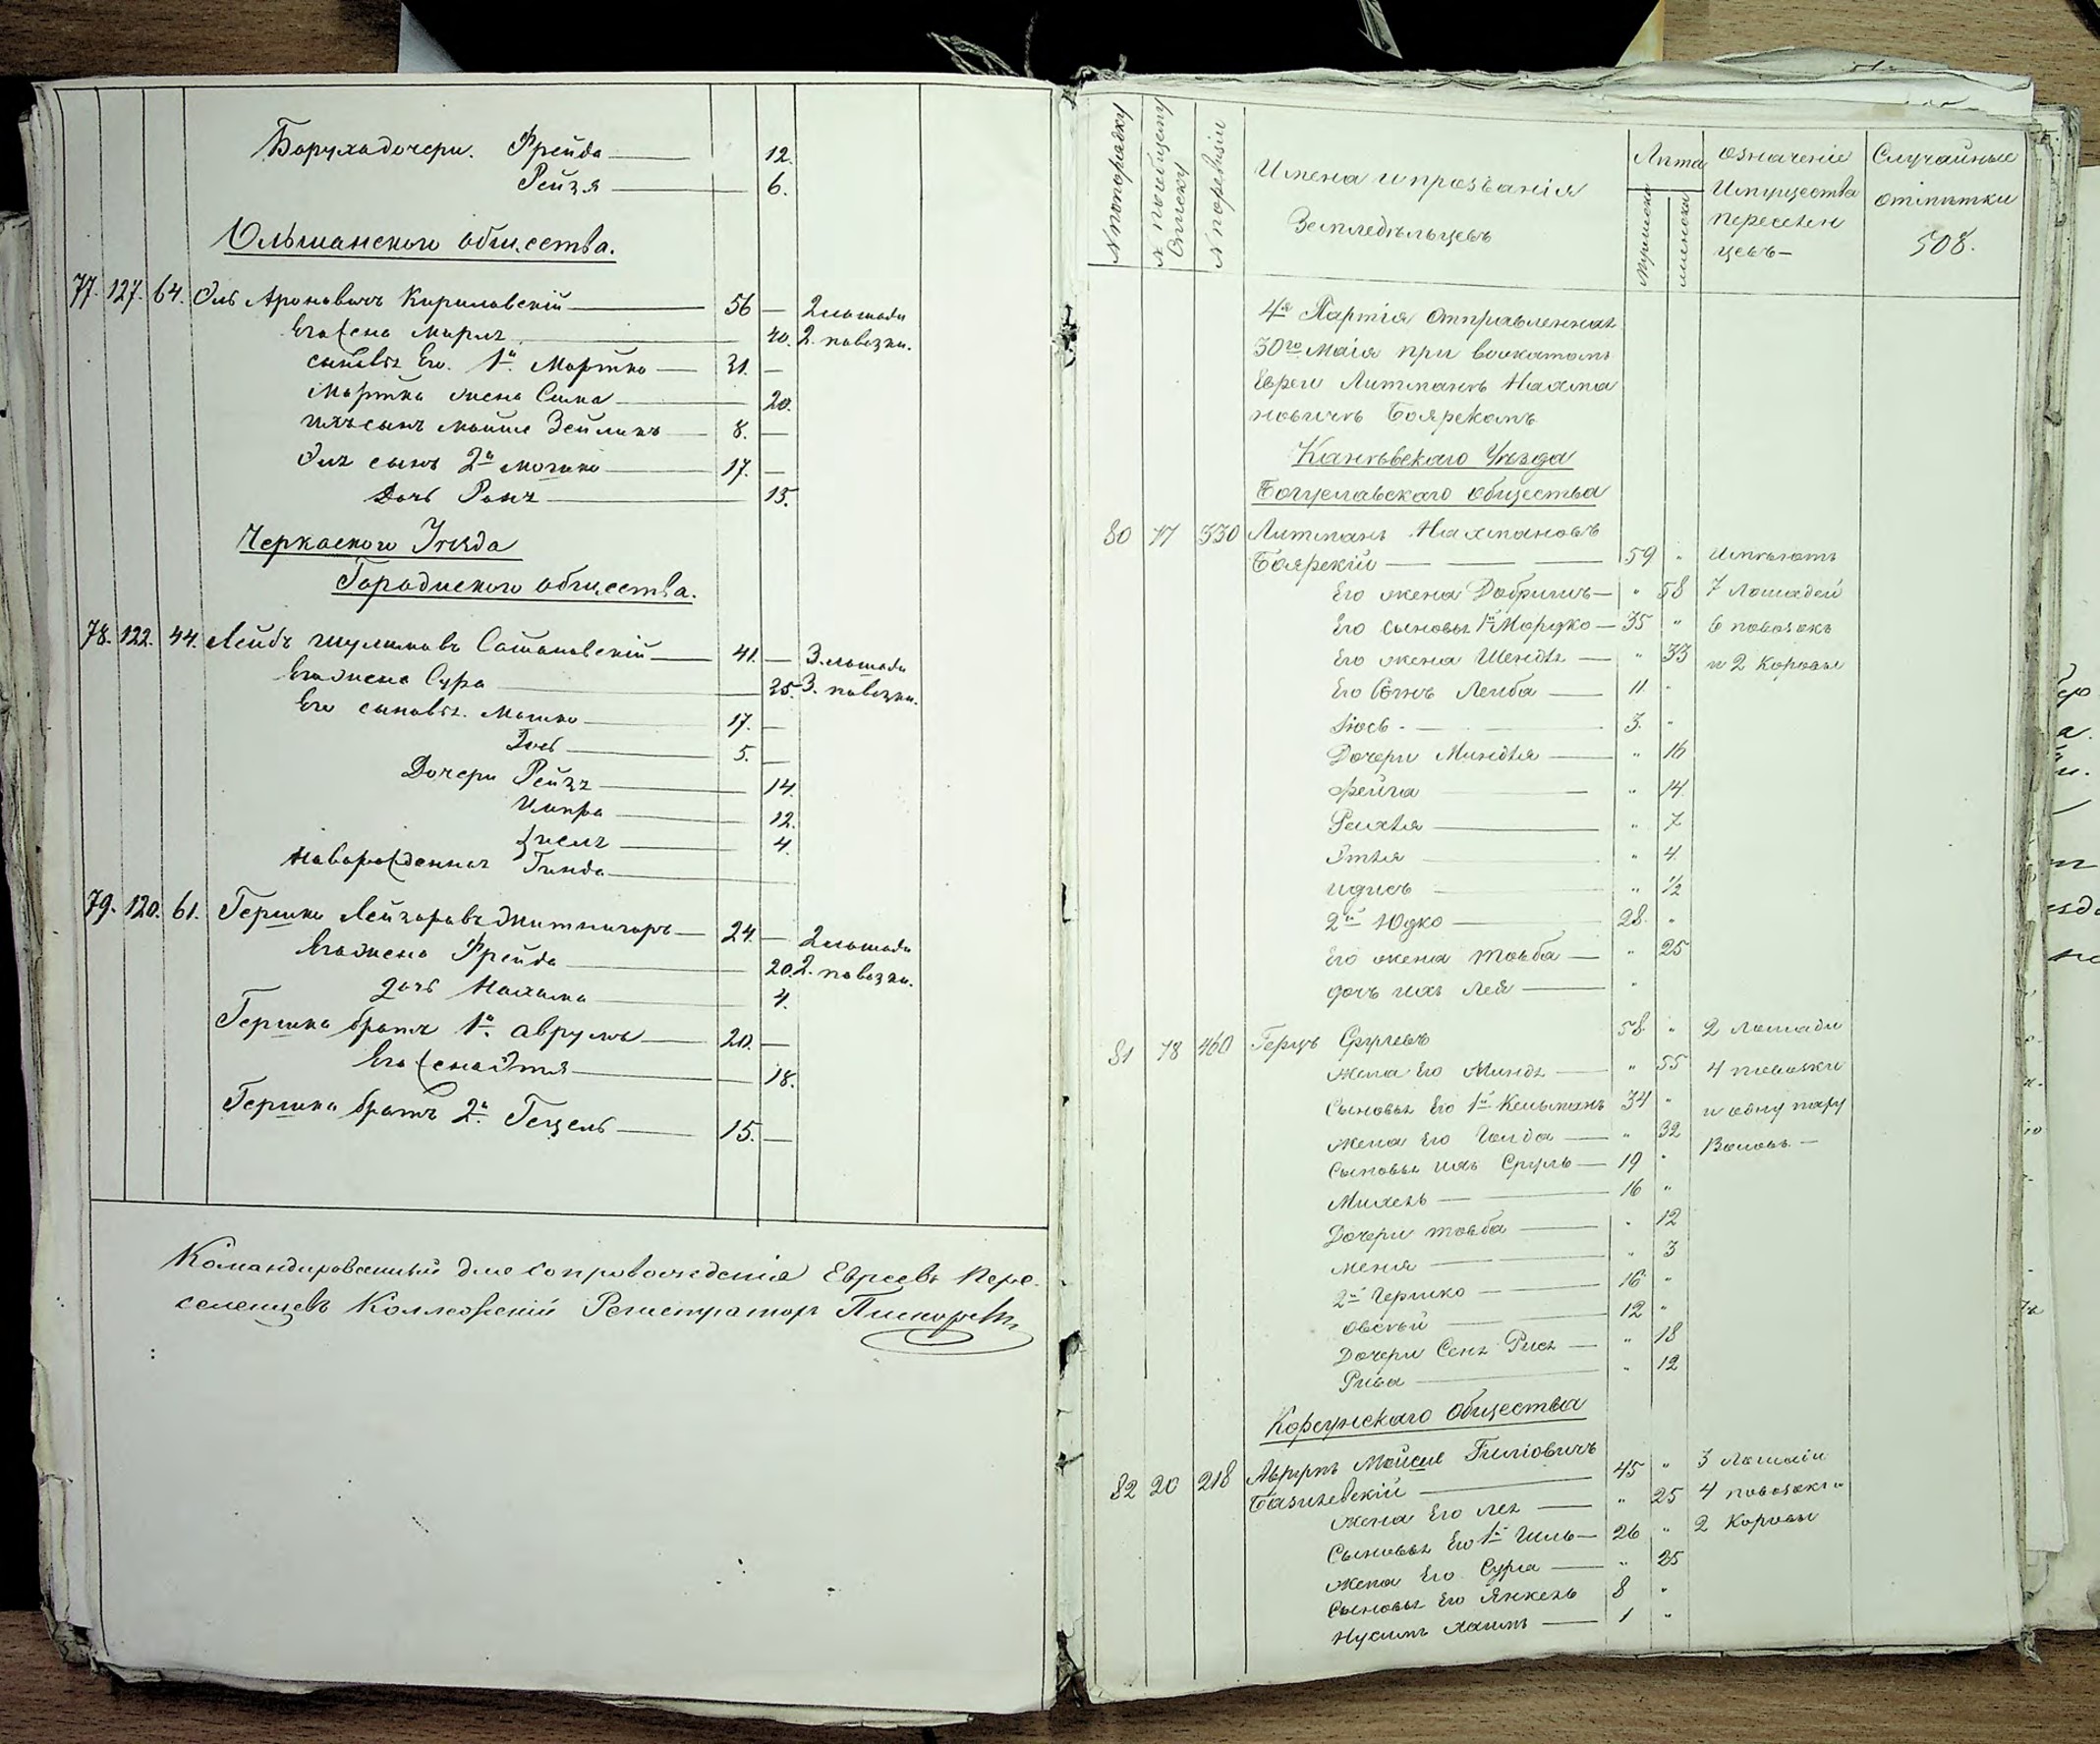 Боруха дочери. Фрейда — 12.
Рейзя — 6.
Ольшанского общества.
77. 127. 64. Эль Ароновичъ Кириловскій — 56 — 2 лошади
Его жена Мирля — 40. 2. повозки.
сыновья Его. 1й. Мортко — 21. —
Мортка жена Сима — 20.
ихъ сынъ Мойше Зейликъ — 8. —
Эля сынъ 2й Мошко — 17. —
Дочь — 13.
Черкаского Уѣзда
Городиского общества.
78. 122. 44. Лейбъ Шулимовъ — 41. — 3. лошади
Его жена Сура — 35. 3. повозки.
Его сыновья. Мошко — 17. —
5. —
Дочери Рейзя — 14.
12.
4.
Новорожденная Гинда —
79. 120. 61. Гершко Лейзоровъ Житничоръ — 24. — 2 лошади
Его жена Фрейда — 20. 2. повозки.
дочь Нахама — 4.
Гершка братъ 1й. Аврумъ — 20. —
Его жена Этя — 18.
Гершка братъ 2й. Гецель — 15. —
Командированный для сопровожденія Евреевъ Пере-
селенцевъ Коллежскій Регистраторъ
№ по порядку
№ по общему Списку
№ по ревизіи
Имена и прозванія
Земледѣльцевъ
Лѣта
мужеска
женска
Означеніе
Имущества
переселен
цевъ —
Случайные
отмѣтки
508.
4я Партія отправленная
30го Маія при вожатомъ
Евреи Литманѣ Нахма
новичѣ Боярскомъ
Каневскаго Уѣзда
Богуславскаго общества
80 77 330 Литманъ Нахмановъ
Боярскій — 59 " Имѣютъ
Его жена Добришъ — " 58 7 лошадей
Его сыновья 1й Мордко — 35 " 6 повозокъ
Его жена Шендля — " 33 и 2 Коровы
Его Сынъ Лейба — 11. "
Іось — 3. "
Дочери Миндля — " 16
Фейга — " 14.
Рейхля — " 7
Этля — " 4.
Идись — " 1/2
2й Юдко — 28. "
Его жена Товба — " 25
дочь ихъ Лея — "
81 78 460 Герцъ Срулевъ 58. " 2 лошади
жена Его Миндля — " 55 4 повозки
Сыновья Его 1й Кельманъ 34 " и одну пару
жена Его Голда — " 32 Воловъ —
Сыновья ихъ Сруль — 19 "
Михель — 16 "
Дочери Товба — " 12
Меня — " 3
2й Гершко — 16 "
Овсѣй — 12 "
Дочери — " 18
Рива — " 12
Корсунскаго Общества
82 20 218 Аврумъ Мойсей 45 " 3 лошади
Базилевскій — 4 повозки и
жена Его Лея — " 25 2 Коровы
Сыновья Его 1й — 26 "
жена Его Сура — " 25
Сыновья Его Янкель 8 "
Нухимъ Хаимъ — 1 "